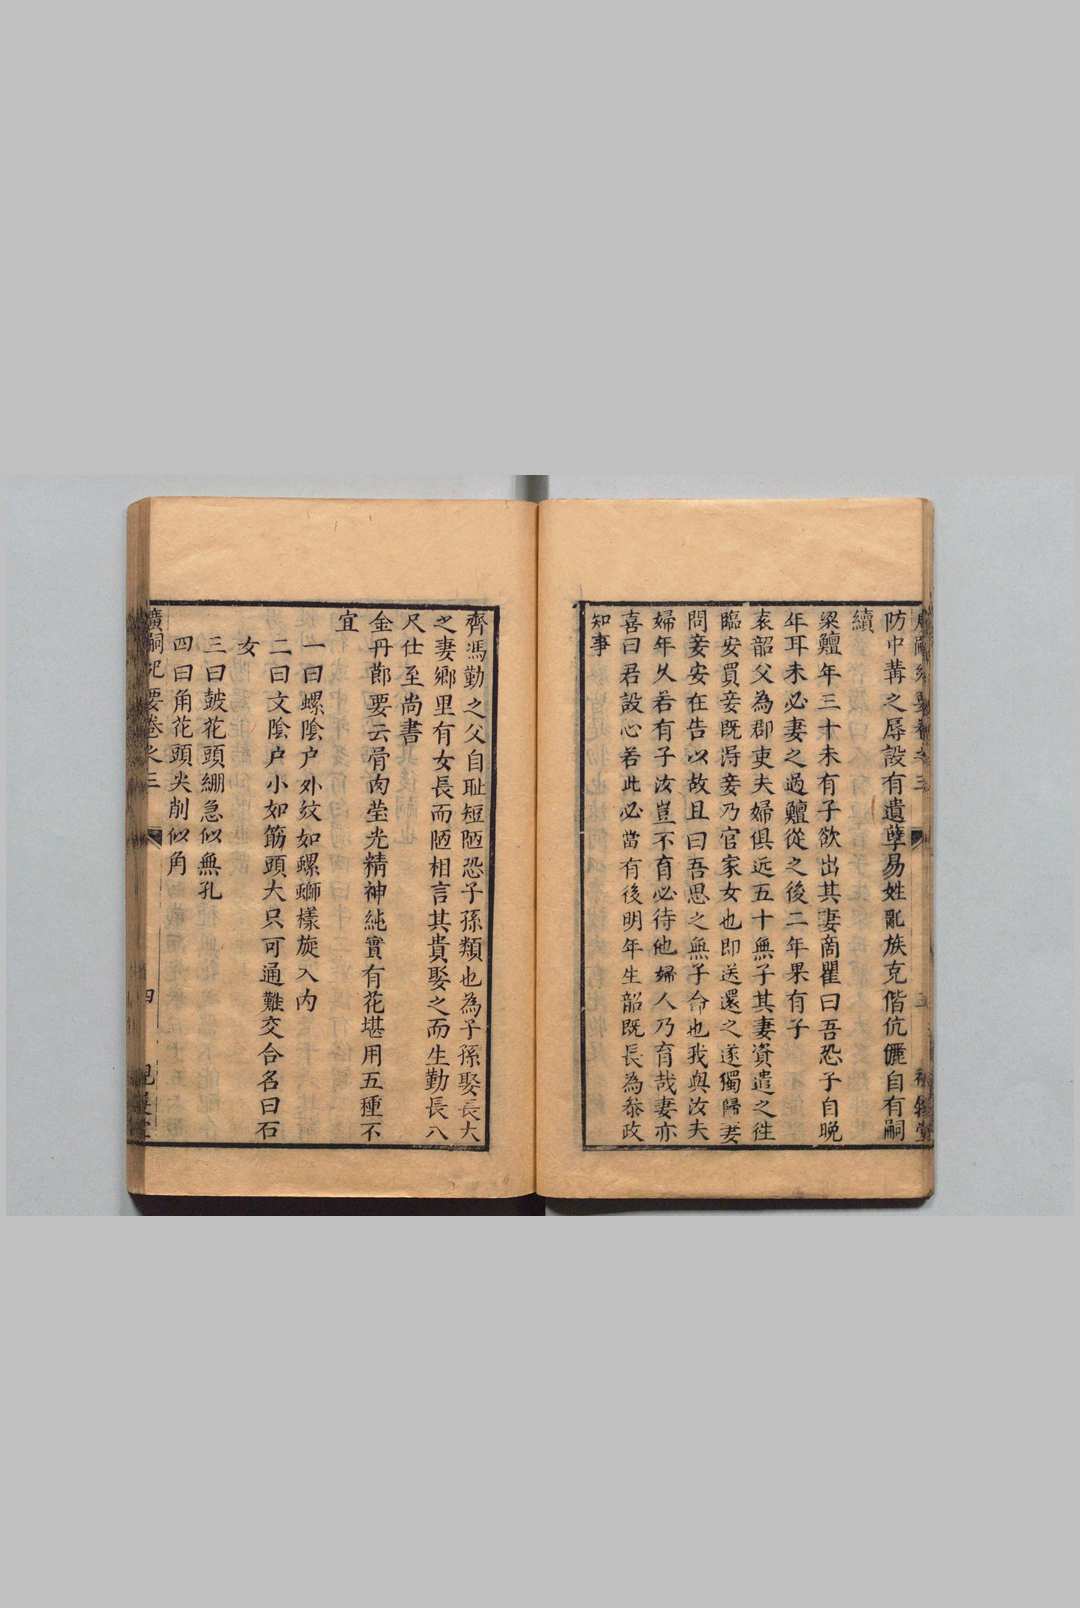 防中冓之辱設有遺孽易姓亂族克偕伉儷自有嗣
續
梁鱣年三十未有子欲出其妻商瞿曰吾恐子自晚
年耳未必妻之過鱣從之後二年果有子
袁韶父為郡吏夫婦俱近五十無子其妻資遣之徃
臨安買妾既淂妾乃官家女也即送還之遂獨歸妻
問妾安在告以故且曰吾思之無子命也我與汝夫
婦年久若有子汝豈不育必待他婦人乃育哉妻亦
喜曰君設心若此必當有後明年生韶既長為叅政
知事
齊馮勤之父自耻短陋恐子孫類也為子孫娶長大
之妻鄉里有女長而陋相言其貴娶之而生勤長八
尺仕至尚書
金丹節要云骨肉莹光精神純實有花堪用五種不
宜
一曰螺陰户外紋如螺螄樣旋入內
二曰文陰户小如筋頭大只可通難交合名曰石
女
三曰皷花頭繃急似無孔
四曰角花頭尖削似角
廣嗣紀要卷之三
四